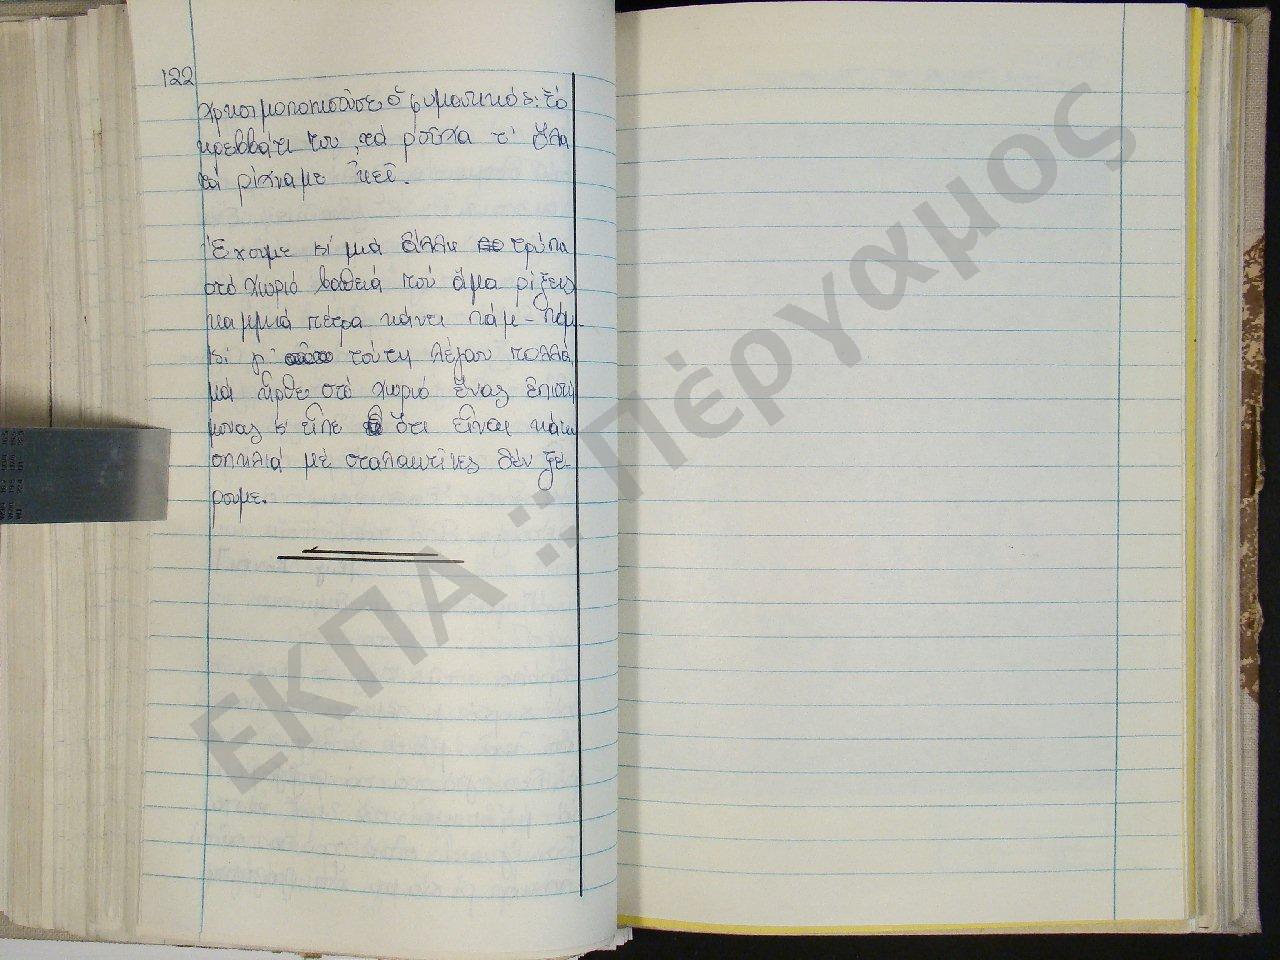 122
χρησιμοποιοῦσε ὁ φυματικός: τό
κρεββάτι του, τά ροῦχα τ' ὅλα
τά ρίχναμε 'κεῖ.
Ἔχουμε κι μιά ἄλλη τρύπα
στό χωριό βαθειά πού ἅμα ρίξεις
καμμιά πέτρα κάνει πάμ-πάμ.
Κι γι' τούτη λέγαν πολλά,
μά ἦρθε στό χωριό ἕνας ἐπιστή
μονας κ' εἶπε ὅτι εἶναι κάτω
σπηλιά μέ σταλακτίτες δέν ξέ-
ρουμε.
ΕΚΠΑ :: Πέργαμος